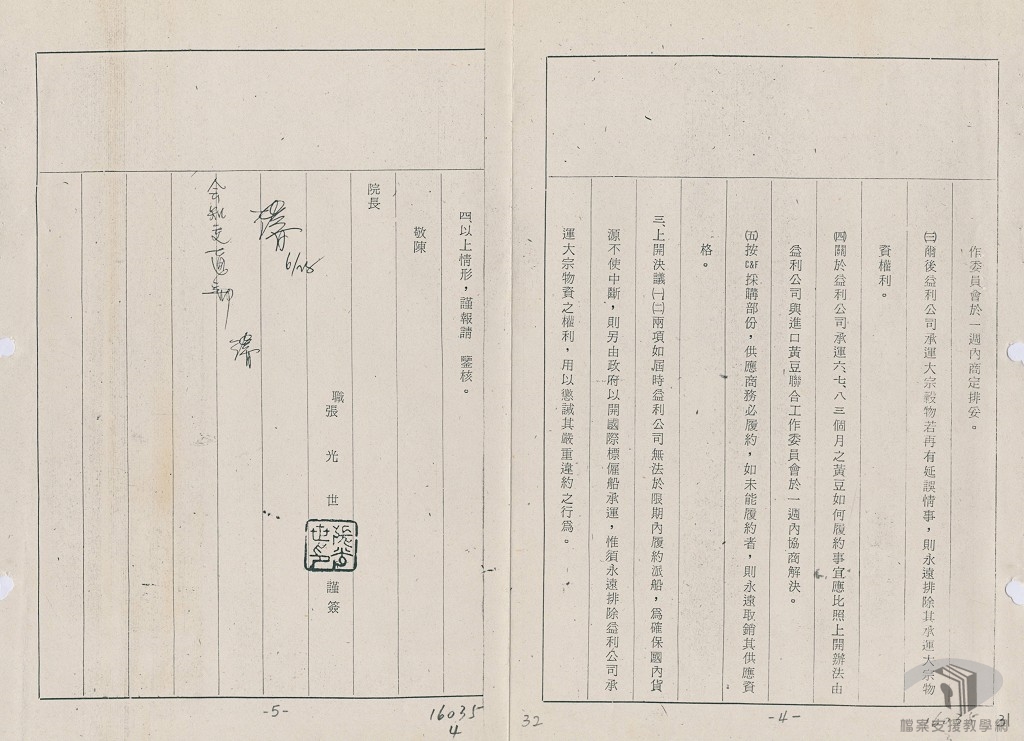 作委員會於一週內商定排妥。
㈢爾後益利公司承運大宗穀物若再有延誤情事，則永遠排除其承運大宗物
資權利。
㈣關於益利公司承運六、七、八三個月之黃豆如何履約事宜應比照上開辦法由
益利公司與進口黃豆聯合工作委員會於一週內協商解決。
㈤按C&F採購部份，供應商務必履約，如未能履約者，則永遠取銷其供應資
格。
三、上開決議㈠㈡兩項如屆時益利公司無法於限期內履約派船，為確保國內貨
源不使中斷，則另由政府以開國際標僱船承運，惟須永遠排除益利公司承
運大宗物資之權利，用以懲誡其嚴重違約之行為。
-4-
31
32
四、以上情形，謹報請　鑒核。
敬陳
院長
職
張光世
謹簽
-5-
16035
4
檔案支援教學網